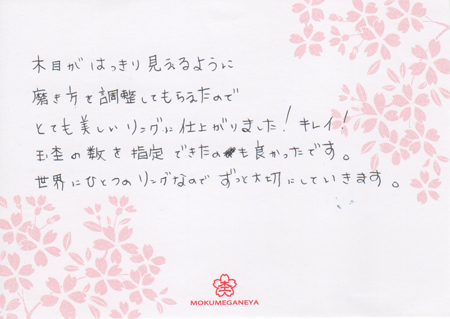 木目がはっきり見えるように
磨き方を調整してもらえたので
とても美しいリングに仕上がりました！キレイ！
玉杢の数を指定できたのも良かったです。
世界にひとつのリングなのでずっと大切にしていきます。
MOKUMEGANEYA